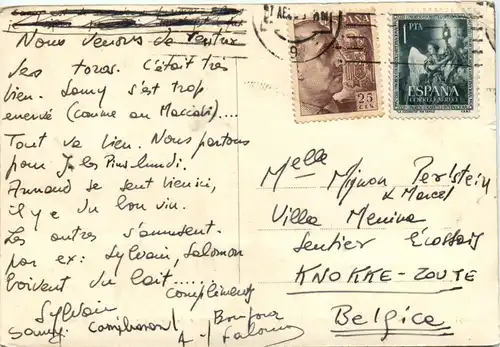 Nous venons de rentrer
des toros. C'était très
bien. Samy s'est trop
énervé (comme au Maccabi)....
Tout va bien. Nous partons
pour J. les Pins lundi.
Armand se sent bien ici,
il y a du bon vin.
Les autres s'amusent.
par ex: Sylvain, Salomon
boivent du lait........
Compliments
Sylvain
Bonjour
Samy.
Salomon
ESPAÑA
25
1 PTA
ESPAÑA
Melle
Mignon Perlstein
& Marcel
Villa Menina
Sentier Ecossais
KNOKKE-ZOUTE
Belgica